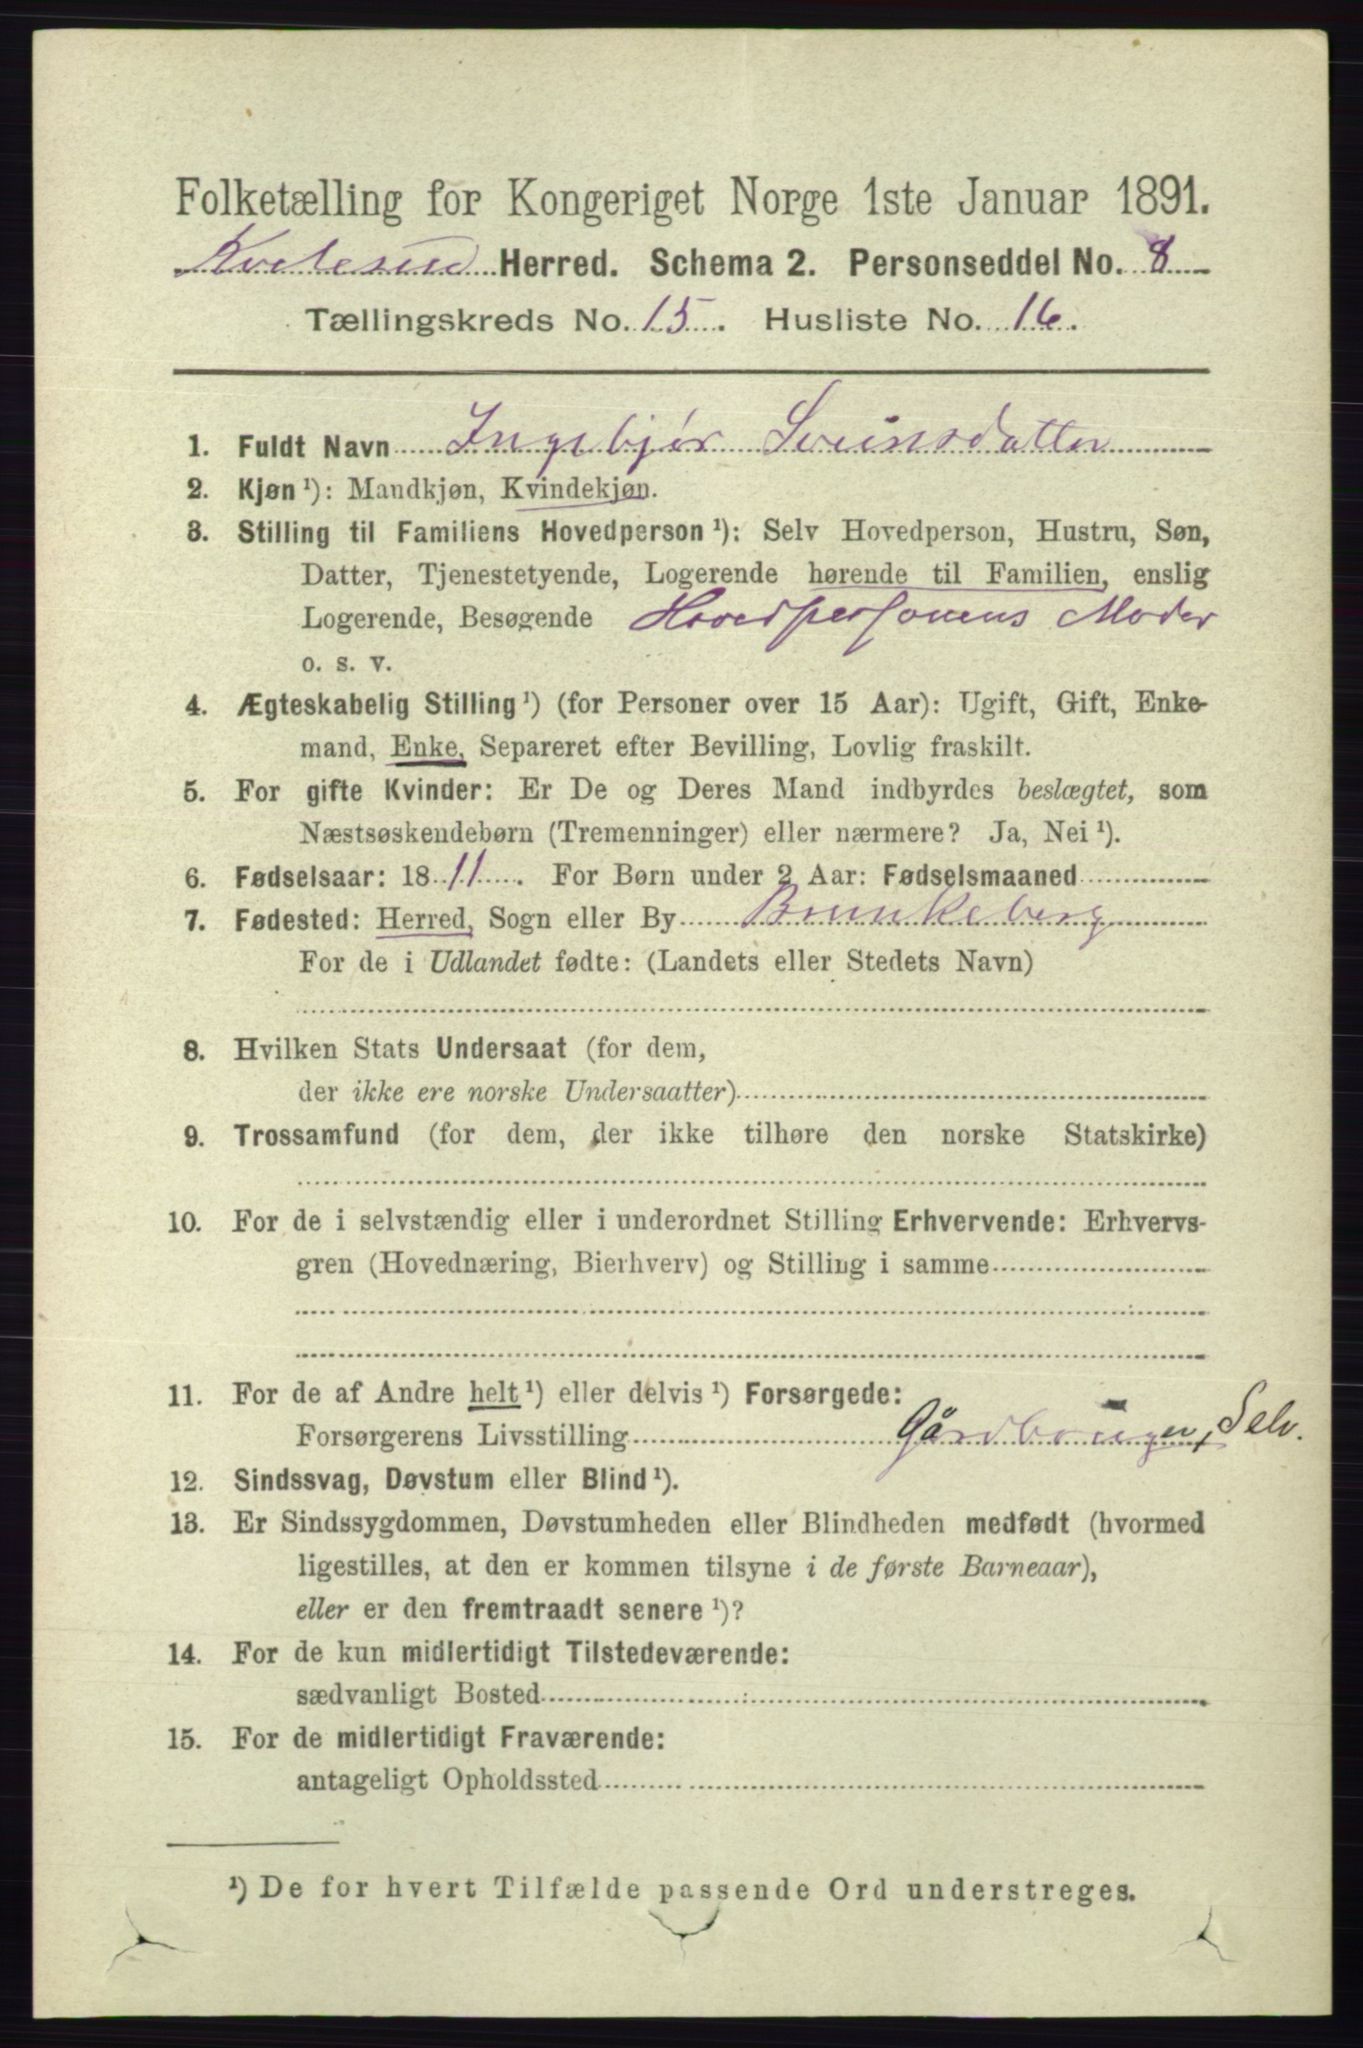 Folketælling for Kongeriget Norge 1ste Januar 1891.
Kviteseid Herred. Schema 2. Personseddel No. 8
Tællingskreds No. 15. Husliste No. 16.
1. Fuldt Navn Ingebjør Sveinsdatter
2. Kjøn ¹): Mandkjøn, Kvindekjøn.
3. Stilling til Familiens Hovedperson ¹): Selv Hovedperson, Hustru, Søn,
Datter, Tjenestetyende, Logerende hørende til Familien, enslig
Logerende, Besøgende Hovedpersonens Moder
o. s. v.
4. Ægteskabelig Stilling ¹) (for Personer over 15 Aar): Ugift, Gift, Enke-
mand, Enke, Separeret efter Bevilling, Lovlig fraskilt.
5. For gifte Kvinder: Er De og Deres Mand indbyrdes beslægtet, som
Næstsøskendebørn (Tremenninger) eller nærmere? Ja, Nei ¹).
6. Fødselsaar: 1811. For Børn under 2 Aar: Fødselsmaaned
7. Fødested: Herred, Sogn eller By Brunkeberg
For de i Udlandet fødte: (Landets eller Stedets Navn)
8. Hvilken Stats Undersaat (for dem,
der ikke ere norske Undersaatter)
9. Trossamfund (for dem, der ikke tilhøre den norske Statskirke)
10. For de i selvstændig eller i underordnet Stilling Erhvervende: Erhvervs-
gren (Hovednæring, Bierhverv) og Stilling i samme
11. For de af Andre helt ¹) eller delvis ¹) Forsørgede:
Forsørgerens Livsstilling Selv.
12. Sindssvag, Døvstum eller Blind ¹).
13. Er Sindssygdommen, Døvstumheden eller Blindheden medfødt (hvormed
ligestilles, at den er kommen tilsyne i de første Barneaar),
eller er den fremtraadt senere ¹)?
14. For de kun midlertidigt Tilstedeværende:
sædvanligt Bosted
15. For de midlertidigt Fraværende:
antageligt Opholdssted
¹) De for hvert Tilfælde passende Ord understreges.